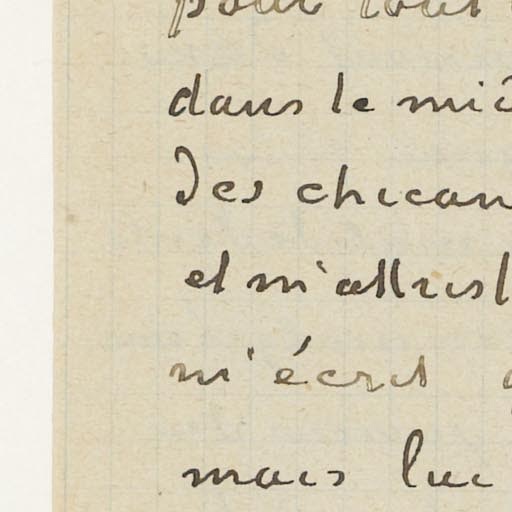 pour tout
dans le mid
des chican
et m'attrist
m'écrit q
mais lui